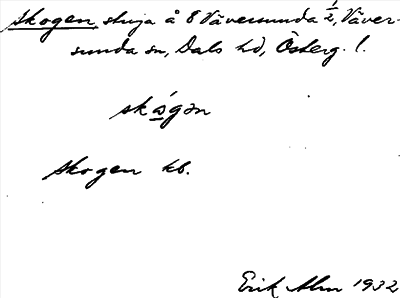 Skogen, stuga å 8 Väversunda ½, Väver-
sunda sn, Dals hd, Österg. l.
skɷ́gən
Skogen kb.
Erik Alm 1932